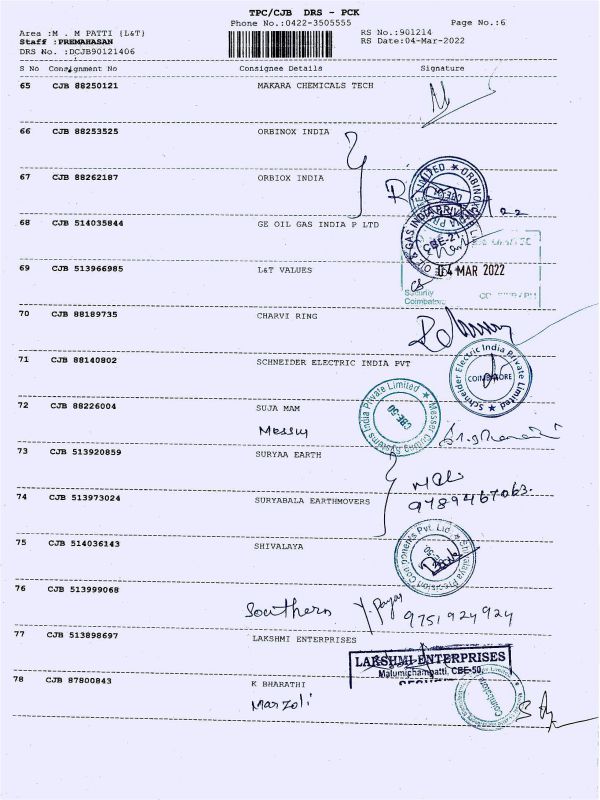 TPC/CJB DRS - PCK
Phone No.:0422-3505555 Page No.:6
Area :M . M PATTI {L&T} RS No.:901214
Staff :PREMAHASAN RS Date:04-Mar-2022
DRS No. :DCJB90121406
S No Consignment No Consignee Details Signature
65 CJB 88250121 MAKARA CHEMICALS TECH
66 CJB 88253525 ORBINOX INDIA
67 CJB 88262187 ORBIOX INDIA
68 CJB 514035844 GE OIL GAS INDIA P LTD
69 CJB 513966985 L&T VALUES
04 MAR 2022
Security
Coimbatore
70 CJB 88189735 CHARVI RING
71 CJB 88140802 SCHNEIDER ELECTRIC INDIA PVT
Schneider Electric India Private Limited
COIMBATORE
72 CJB 88226004 SUJA MAM
Messer Cutting Systems India Private Limited
CBE-50
Messer
73 CJB 513920859 SURYAA EARTH
74 CJB 513973024 SURYABALA EARTHMOVERS
9789467063.
75 CJB 514036143 SHIVALAYA
Shivalaya Precision Components Pvt. Ltd.
76 CJB 513999068
Southern 9751924924
77 CJB 513898697 LAKSHMI ENTERPRISES
LAKSHMI ENTERPRISES
Malumichampatti, CBE-50
78 CJB 87800843 K BHARATHI
Marzoli
Coimbatore